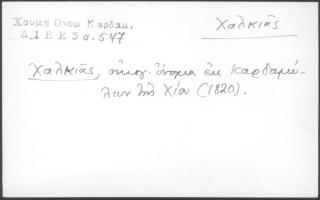 Χουμη Ονομ Καρδαμ.
Δ.Ι Ε Ε 3 σ. 547
Χαλκιᾶς
Χαλκιᾶς, οἰκογ. ὄνομα ἐκ Καρδαμύ-
λων τῆς Χίου (1820).